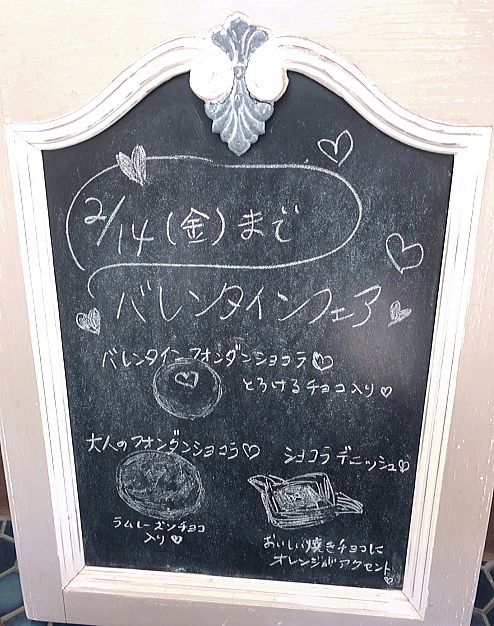 2/14(金)まで
バレンタインフェア
バレンタインフォンダンショコラ♡
とろけるチョコ入り♡
大人のフォンダンショコラ♡
ラムレーズンチョコ
入り♡
ショコラデニッシュ♡
おいしい焼きチョコに
オレンジがアクセント♡